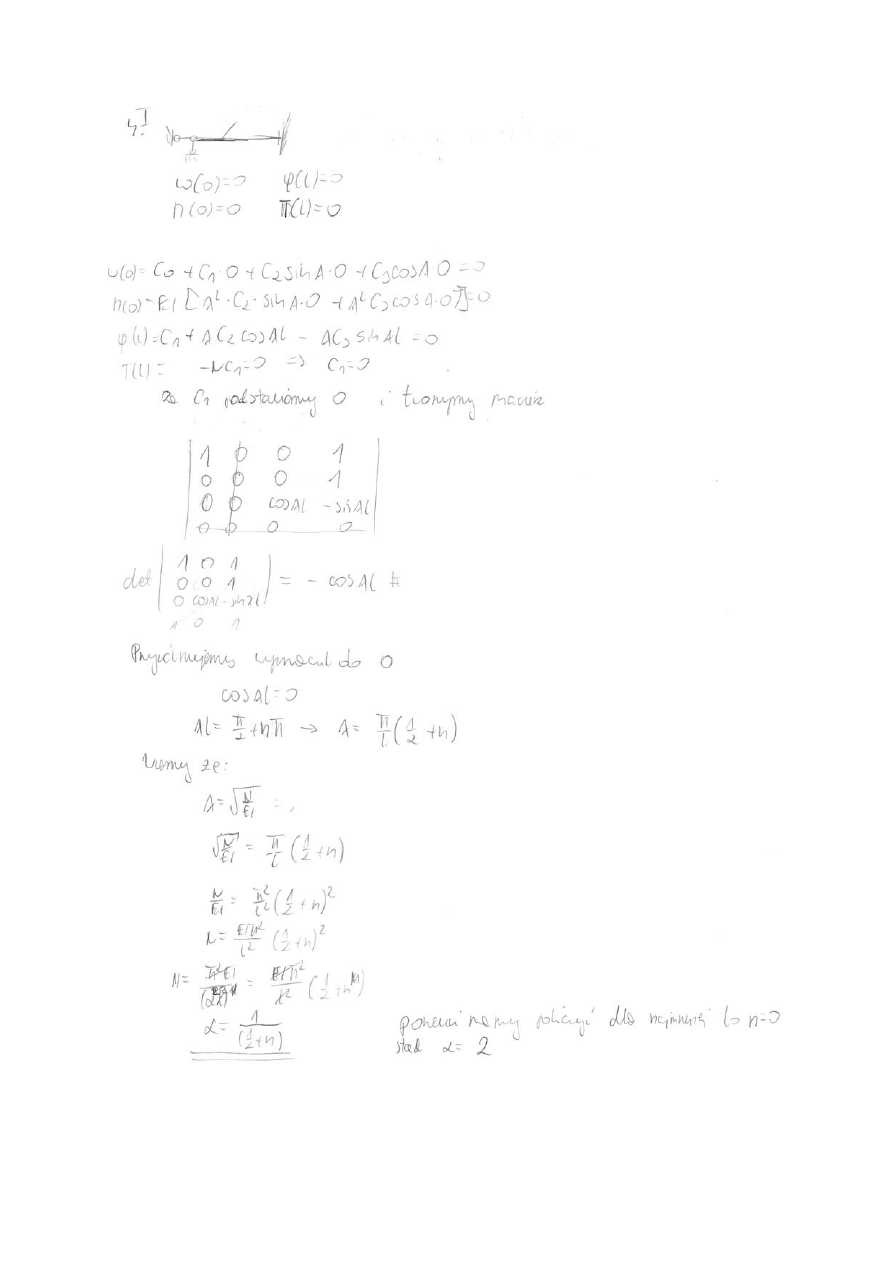 4.I
ω(0)=0 φ(l)=0
M(0)=0 T(l)=0
ω(0)= C0 + C1·0 + C2 sin λ·0 + C3 cos λ 0 = 0
M(0)= EI [λ²·C2·sin λ·0 + λ² C3 cos λ·0]=0
φ(l)= C1 + λ C2 cos λl - λC3 sin λl = 0
T(l)= -NC1=0 => C1=0
za C1 podstawiamy 0 i tworzymy macierz
1 0 0 1
0 0 0 1
0 0 cosλl -sinλl
0 0 0 0
det | 1 0 1 | = - cosλl
0 0 1
0 cosλl -sinλl
1 0 1
Przyrównujemy wyznacznik do 0
cosλl=0
λl= π/2 +nπ → λ= π/l (1/2 +n)
Wiemy że:
λ=√(N/EI) =
√(N/EI) = π/l (1/2 +n)
N/EI = π²/l² (1/2 +n)²
N= EIπ²/l² (1/2 +n)²
N= π²EI/(αl)² = EIπ²/l² (1/2 +n)
α= 1/(1/2+n)
ponieważ mamy policzyć dla najmniejszej to n=0
stąd α= 2